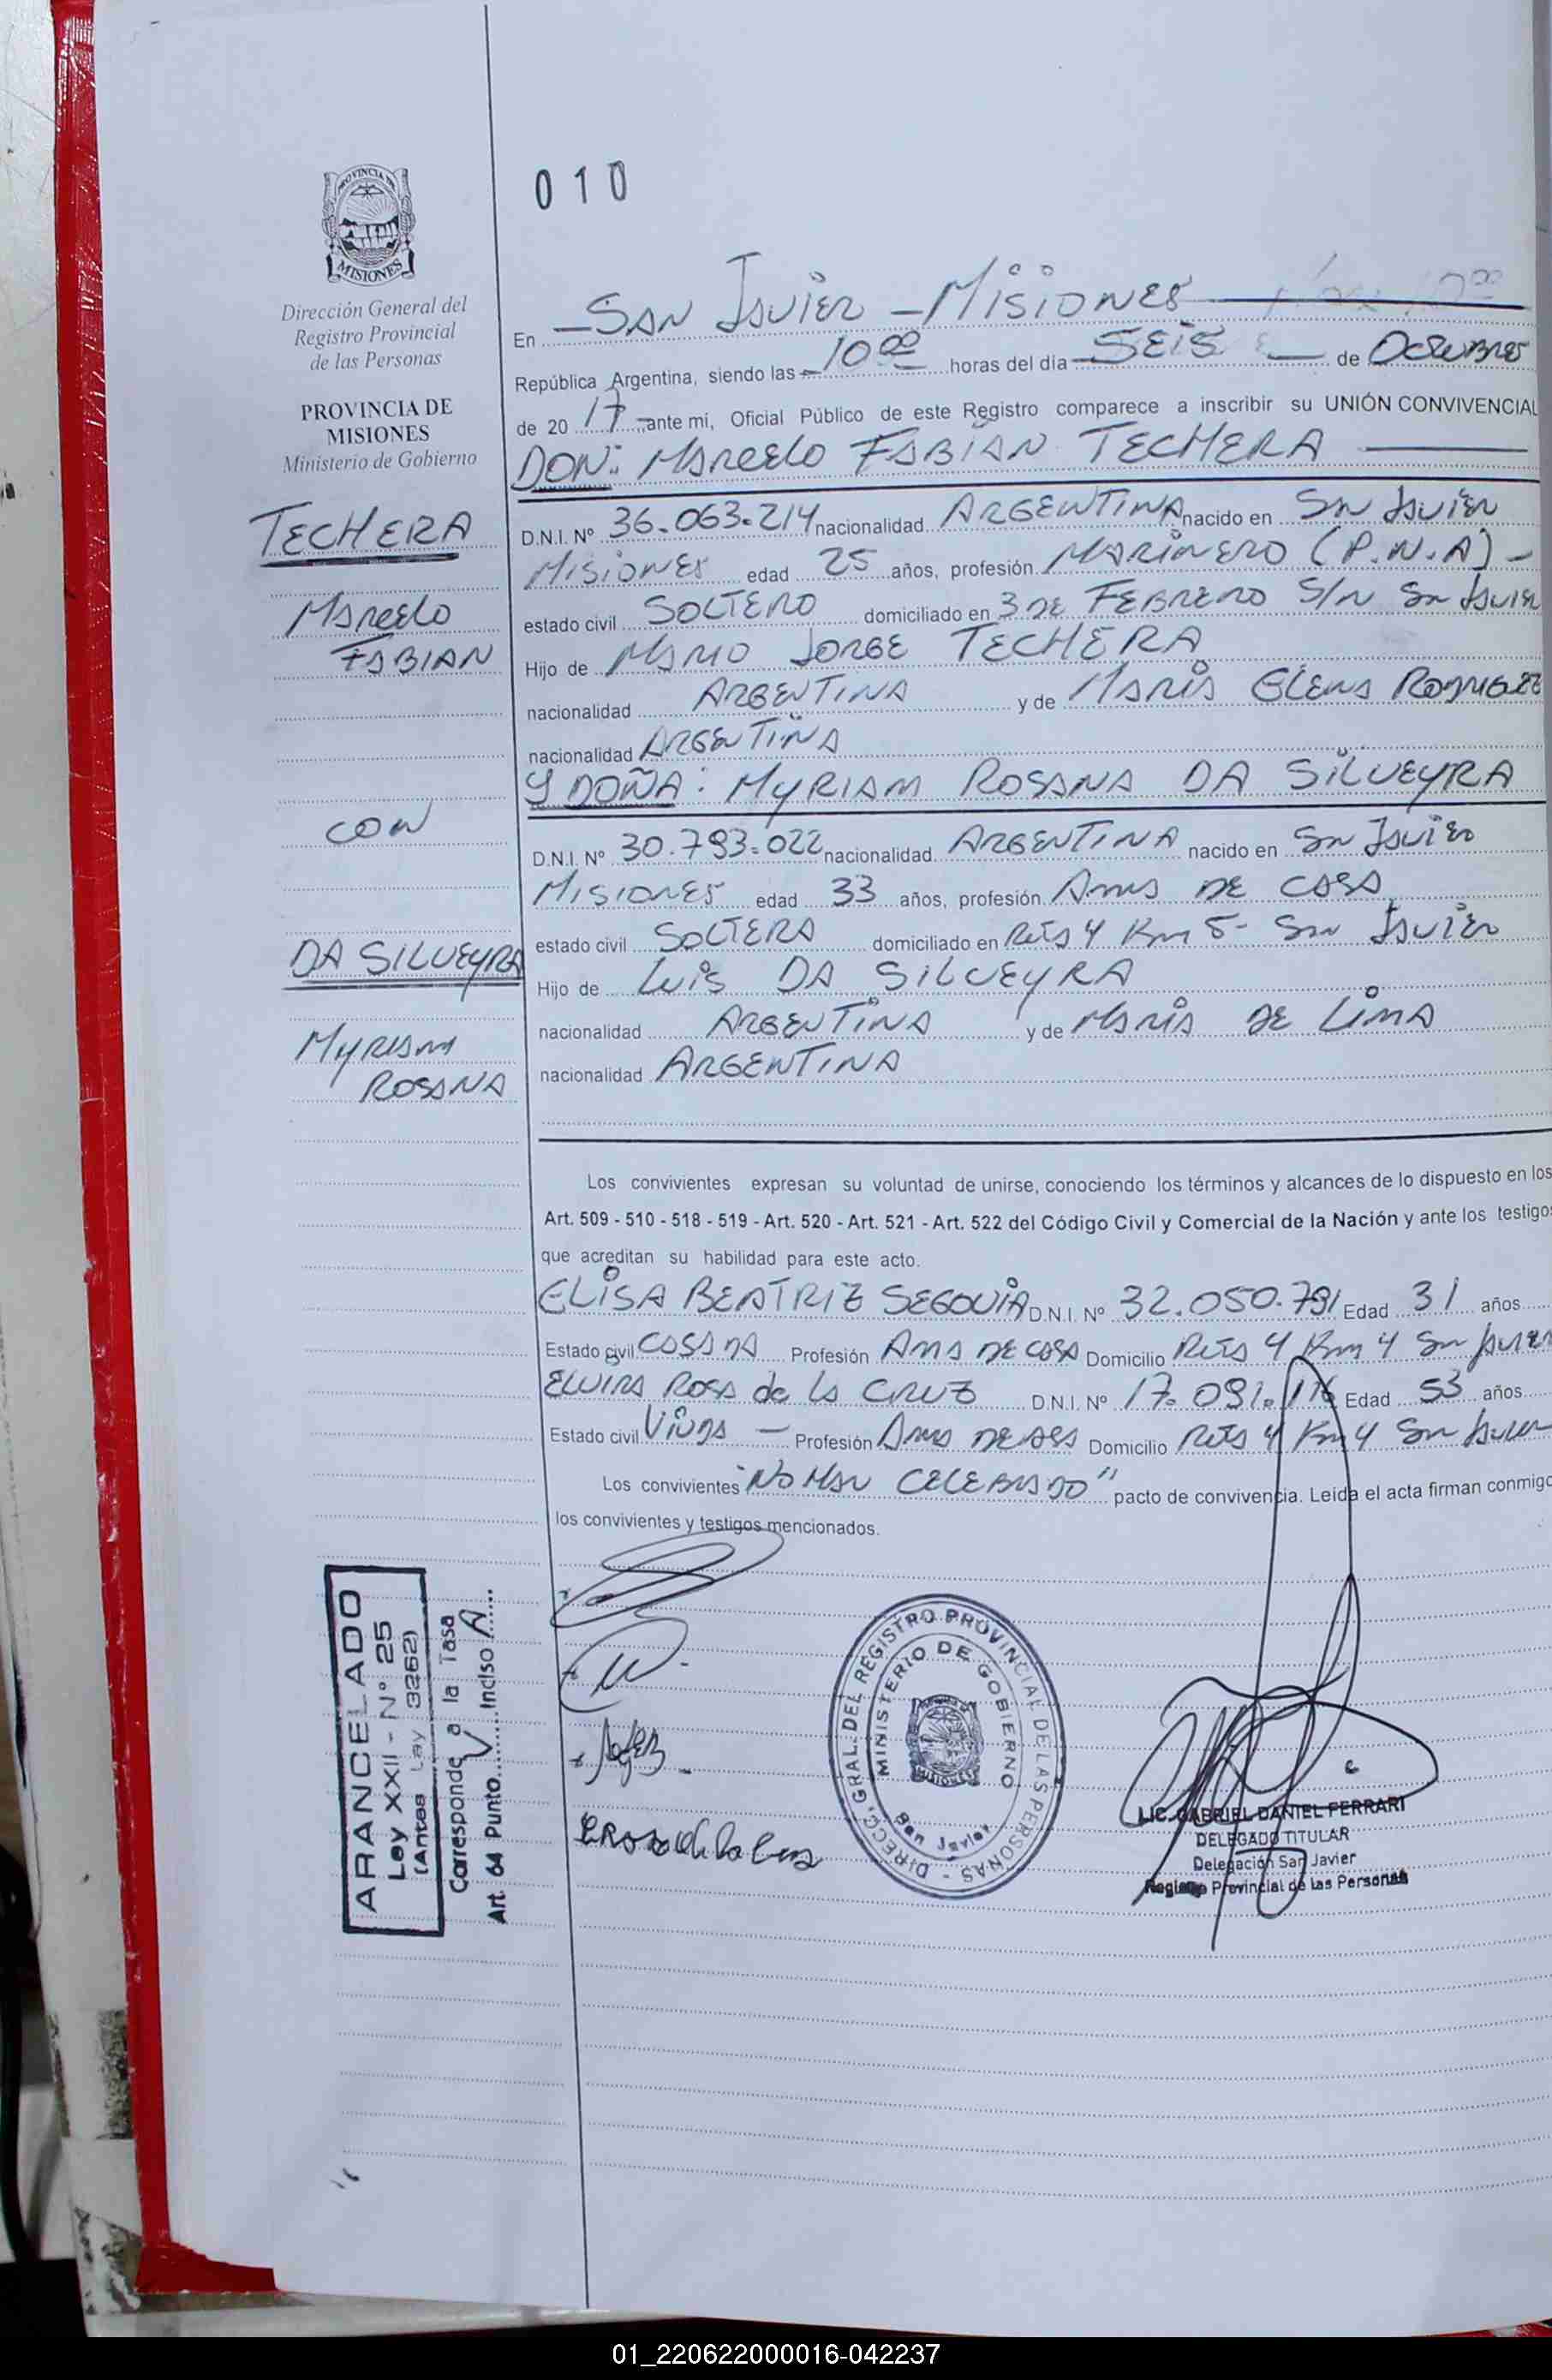 010
PROVINCIA DE
MISIONES
Dirección General del
Registro Provincial
de las Personas
PROVINCIA DE
MISIONES
Ministerio de Gobierno
TECHERA
Marcelo
FABIAN
CON
DA SILVEYRA
Myriam
ROSANA
En SAN JAVIER - MISIONES
República Argentina, siendo las 10 00 horas del día SEIS de OCTUBRE
de 20 17 ante mi, Oficial Público de este Registro comparece a inscribir su UNIÓN CONVIVENCIAL
DON: MARCELO FABIÁN TECHERA
D.N.I. Nº 36.063.214 nacionalidad ARGENTINA nacido en SAN JAVIER
MISIONES edad 25 años, profesión MARINERO (P.N.A) -
estado civil SOLTERO domiciliado en 3 DE FEBRERO S/N SAN JAVIER
Hijo de MARIO JORGE TECHERA
nacionalidad ARGENTINA y de MARIA ELENA RODRIGUEZ
nacionalidad ARGENTINA
Y DOÑA: MYRIAM ROSANA DA SILVEYRA
D.N.I. Nº 30.793.022 nacionalidad ARGENTINA nacido en SAN JAVIER
MISIONES edad 33 años, profesión AMA DE CASA
estado civil SOLTERA domiciliado en RUTA 4 Km 5- SAN JAVIER
Hijo de LUIS DA SILVEYRA
nacionalidad ARGENTINA y de MARIA DE LIMA
nacionalidad ARGENTINA
Los convivientes expresan su voluntad de unirse, conociendo los términos y alcances de lo dispuesto en los
Art. 509 - 510 - 518 - 519 - Art. 520 - Art. 521 - Art. 522 del Código Civil y Comercial de la Nación y ante los testigos
que acreditan su habilidad para este acto.
ELISA BEATRIZ SEGOVIA D.N.I. Nº 32.050.791 Edad 31 años
Estado civil CASADA Profesión AMA DE CASA Domicilio RUTA 4 Km 4 SAN JAVIER
ELVIRA ROSA de la CRUZ D.N.I. Nº 17.091.116 Edad 53 años
Estado civil VIUDA - Profesión AMA DE CASA Domicilio RUTA 4 Km 4 SAN JAVIER
Los convivientes "NO HAN CELEBRADO" pacto de convivencia. Leída el acta firman conmigo
los convivientes y testigos mencionados.
ARANCELADO
Ley XXII - Nº 25
(Antes Ley 3262)
Corresponde a la Tasa
Art. 64 Punto V Inciso A
DIRECC. GRAL. DEL REGISTRO PROVINCIAL DE LAS PERSONAS -
MINISTERIO DE GOBIERNO
MISIONES
San Javier
LIC. GABRIEL DANIEL FERRARI
DELEGADO TITULAR
Delegación San Javier
Registro Provincial de las Personas
01_220622000016-042237